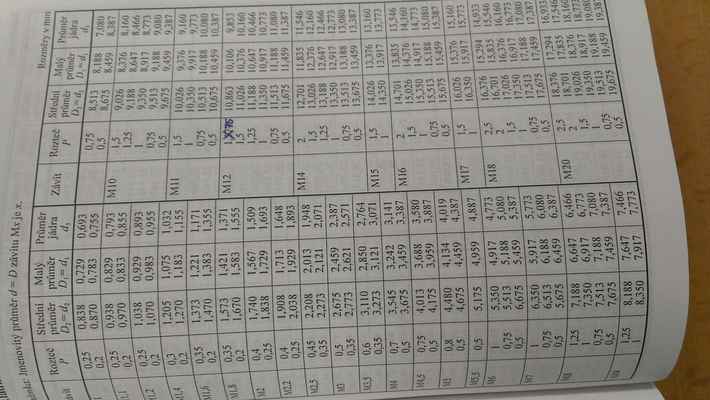 Jmenovitý průměr d = D závitu Mx je x.
Rozteč P Střední průměr D₂ = d₂ Malý průměr D₁ = d₁ Průměr jádra d₃
0,25 0,838 0,729 0,693
0,2 0,870 0,783 0,755
0,25 0,938 0,829 0,793
0,2 0,970 0,833 0,855
0,25 1,038 0,929 0,893
0,2 1,070 0,983 0,955
M1,4 0,3 1,205 1,075 1,032
0,2 1,270 1,183 1,155
M1,6 0,35 1,373 1,221 1,171
0,2 1,470 1,383 1,355
M1,8 0,35 1,573 1,421 1,371
0,2 1,670 1,583 1,555
M2 0,4 1,740 1,567 1,509
0,25 1,838 1,729 1,693
M2,2 1,908 1,713 1,648
0,25 2,038 1,929 1,893
M2,5 0,45 2,208 2,013 1,948
0,35 2,273 2,121 2,071
M3 0,5 2,675 2,459 2,387
0,35 2,773 2,621 2,571
M3,5 0,6 3,110 2,850 2,764
0,35 3,273 3,121 3,071
M4 0,7 3,545 3,242 3,141
0,5 3,675 3,459 3,387
M4,5 0,75 4,013 3,688 3,580
0,5 4,175 3,959 3,887
M5 0,8 4,480 4,134 4,019
0,5 4,675 4,459 4,387
M5,5 0,5 5,175 4,959 4,887
M6 1 5,350 4,917 4,773
0,75 5,513 5,188 5,080
0,5 5,675 5,459 5,387
M7 1 6,350 5,917 5,773
0,75 6,513 6,188 6,080
0,5 6,675 6,459 6,287
M8 1,25 7,188 6,647 6,466
1 7,350 6,917 6,773
0,75 7,513 7,188 7,080
0,5 7,675 7,459 7,387
M9 1,25 8,188 7,647 7,466
1 8,350 7,917 7,773
Rozměry v mm
Závit Rozteč P Střední průměr D₂ = d₂ Malý průměr D₁ = d₁ Průměr jádra d₃
0,75 8,513 8,188 7,080
0,5 8,675 8,459 8,387
M10 1,5 9,026 8,376 8,160
1,25 9,188 8,647 8,466
1 9,350 8,917 8,773
0,75 9,513 9,188 9,080
0,5 9,675 9,459 9,387
M11 1,5 10,026 9,376 9,160
1 10,350 9,917 9,773
0,75 10,513 10,188 10,080
0,5 10,675 10,459 10,387
M12 10,863 10,106 9,853
1,5 11,026 10,376 10,160
1,25 11,188 10,647 10,466
1 11,350 10,917 10,773
0,75 11,513 11,188 11,080
0,5 11,675 11,459 11,387
M14 2 12,701 11,835 11,546
1,5 13,026 12,376 12,160
1,25 13,188 12,647 12,466
1 13,350 12,917 12,773
0,75 13,513 13,188 13,080
0,5 13,675 13,459 13,387
M15 1,5 14,026 13,376 13,160
1 14,350 13,917 13,773
M16 2 14,701 13,835 13,546
1,5 15,026 14,376 14,160
1 15,350 14,917 14,773
0,75 15,513 15,188 15,080
0,5 15,675 15,459 15,387
M17 1,5 16,026 15,376 15,160
1 16,350 15,917 15,773
M18 2,5 16,376 15,294 14,933
2 16,701 15,835 15,546
1,5 17,026 16,376 16,160
1 17,350 16,917 16,773
0,75 17,513 17,188 17,080
0,5 17,675 17,459 17,387
M20 2,5 18,376 17,294 16,933
2 18,701 17,835 17,546
1,5 19,026 18,376 18,160
1 19,350 18,917 18,773
0,75 19,513 19,188 19,080
0,5 19,675 19,459 19,387